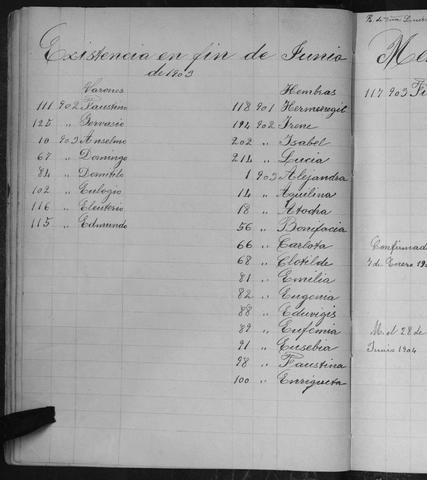 Existencia en fin de Junio
de 1903
Varones
111 902 Faustino
125 " Gervasio
10 903 Anselmo
67 " Domingo
84 " Domitilo
102 " Eulogio
116 " Eleuterio
115 " Edmundo
Hembras
118 901 Hermenegil
194 902 Irene
202 " Isabel
214 " Lucia
1 903 Alejandra
14 " Aquilina
18 " Atocha
56 " Bonifacia
66 " Carlota
68 " Clotilde
81 " Emilia
82 " Eugenia
88 " Eduvigis
89 " Eufemia
91 " Eusebia
98 " Faustina
100 " Enriqueta
Me
117 903
Confirmad
de Enero 19
M. el 28 de
Junio 1904